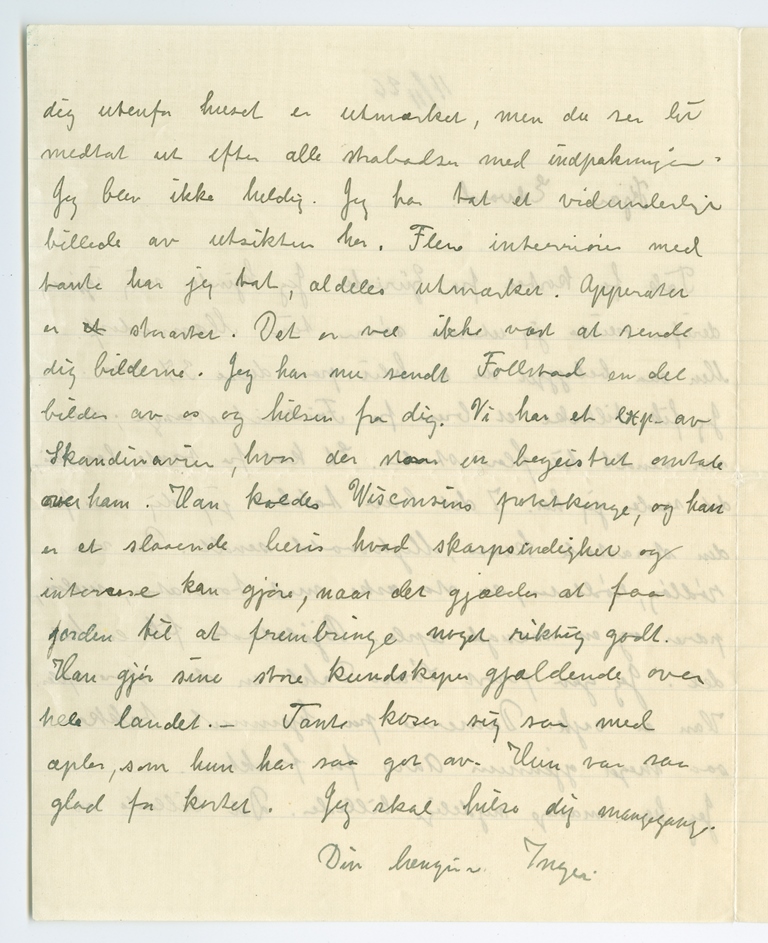 dig utenfor huset er utmærket, men du ser litt
medtat ut efter alle strabadser med indpakningen.
Jeg blev ikke heldig. Jeg har tat et vidunderlig
billede av utsikten her. Flere interiører med
tante har jeg tat, aldeles utmærket. Apparatet
er storartet. Det er vel ikke værd at sende
dig bilderne. Jeg har nu sendt Follstad en del
bilder av os og hilsen fra dig. Vi har et exp. av
Skandinavien, hvor der staar en begeistret omtale
over ham. Han kaldes Wisconsins potetkonge, og han
er et slaaende bevis hvad skarpsindighet og
interesse kan gjøre, naar det gjælder at faa
jorden til at frembringe noget riktig godt.
Han gjør sine store kundskaper gjældende over
hele landet. — Tante koser sig saa med
æpler, som hun har saa got av. Hun var saa
glad for kortet. Jeg skal hilse dig mangegange.
Din Inger.